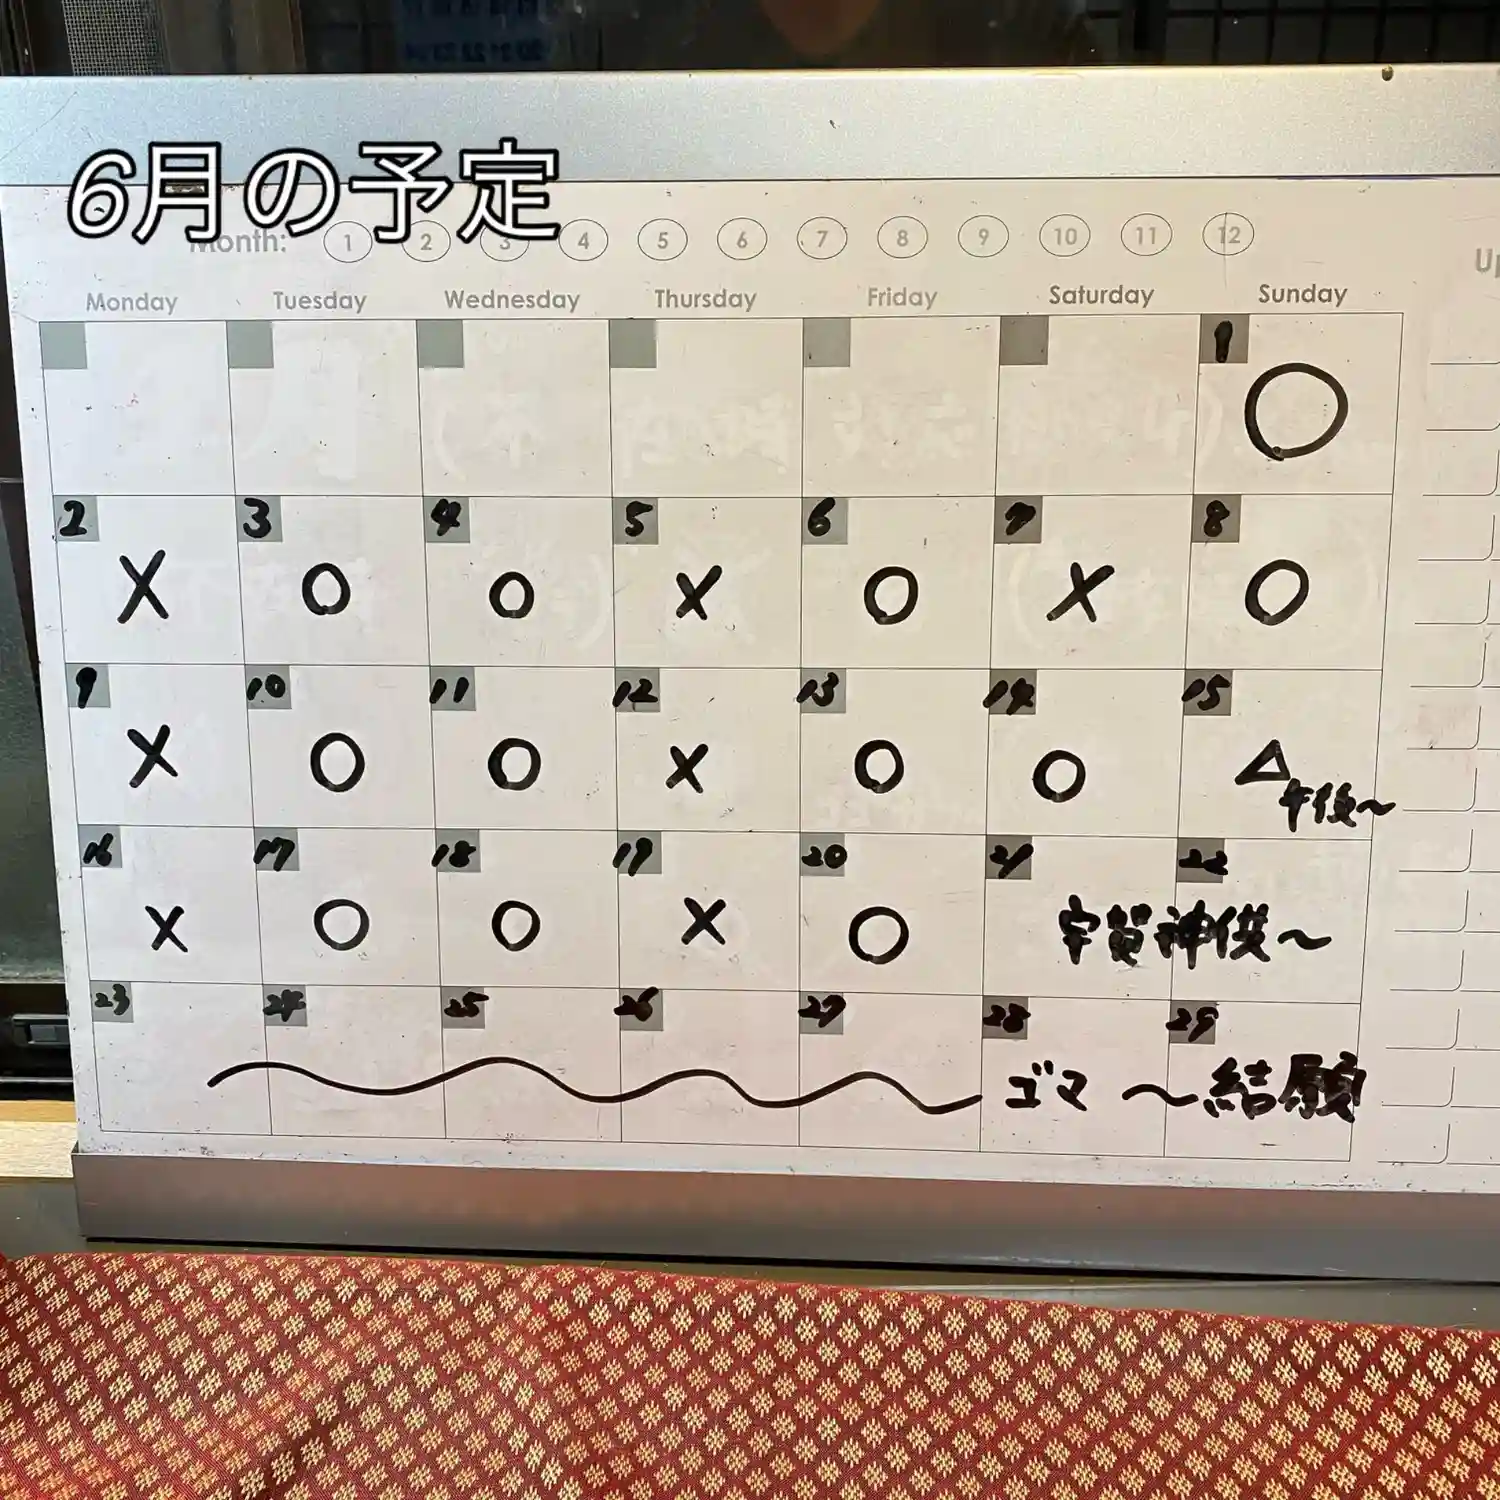 6月の予定
Month: 1 2 3 4 5 6 7 8 9 10 11 12
Up
Monday Tuesday Wednesday Thursday Friday Saturday Sunday
1
○
2 3 4 5 6 7 8
× ○ ○ × ○ × ○
9 10 11 12 13 14 15
× ○ ○ × ○ ○ △
午後〜
16 17 18 19 20 21 22
× ○ ○ × ○ 宇賀神供〜
23 24 25 26 27 28 29
ゴマ 〜結願